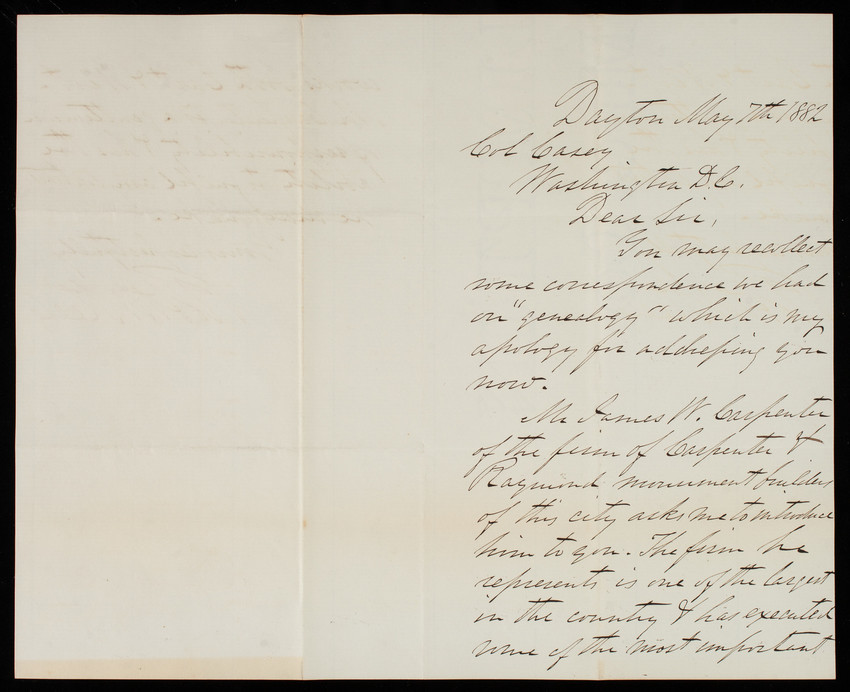 Dayton May 7th 1882
Col Casey
Washington D.C.
Dear Sir,
You may recollect
some correspondence we had
on "genealogy" which is my
apology for addressing you
now.
Mr James W. Carpenter
of the firm of Carpenter &
Raymond monument builders
of this city asks me to introduce
him to you. The firm he
represents is one of the largest
in the country & has executed
some of the most important